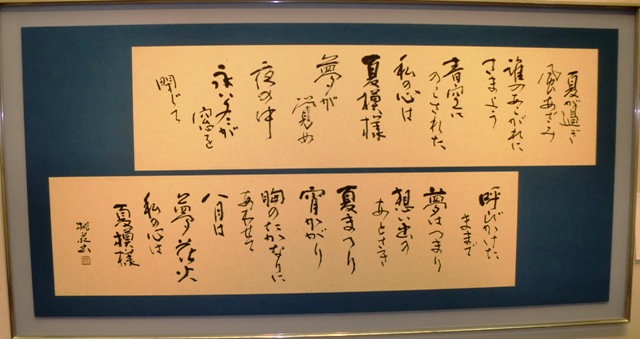 夏が過ぎ
風あざみ
誰のあこがれに
さまよう
青空に
のこされた、
私の心は
夏模様
夢が
覚め
夜の中
永い冬が
窓を
閉じて
呼びかけた
ままで
夢はつまり
想い出の
あとさき
夏まつり
宵かがり
胸のたかなりに
あわせて
八月は
夢花火
私の心は
夏模様